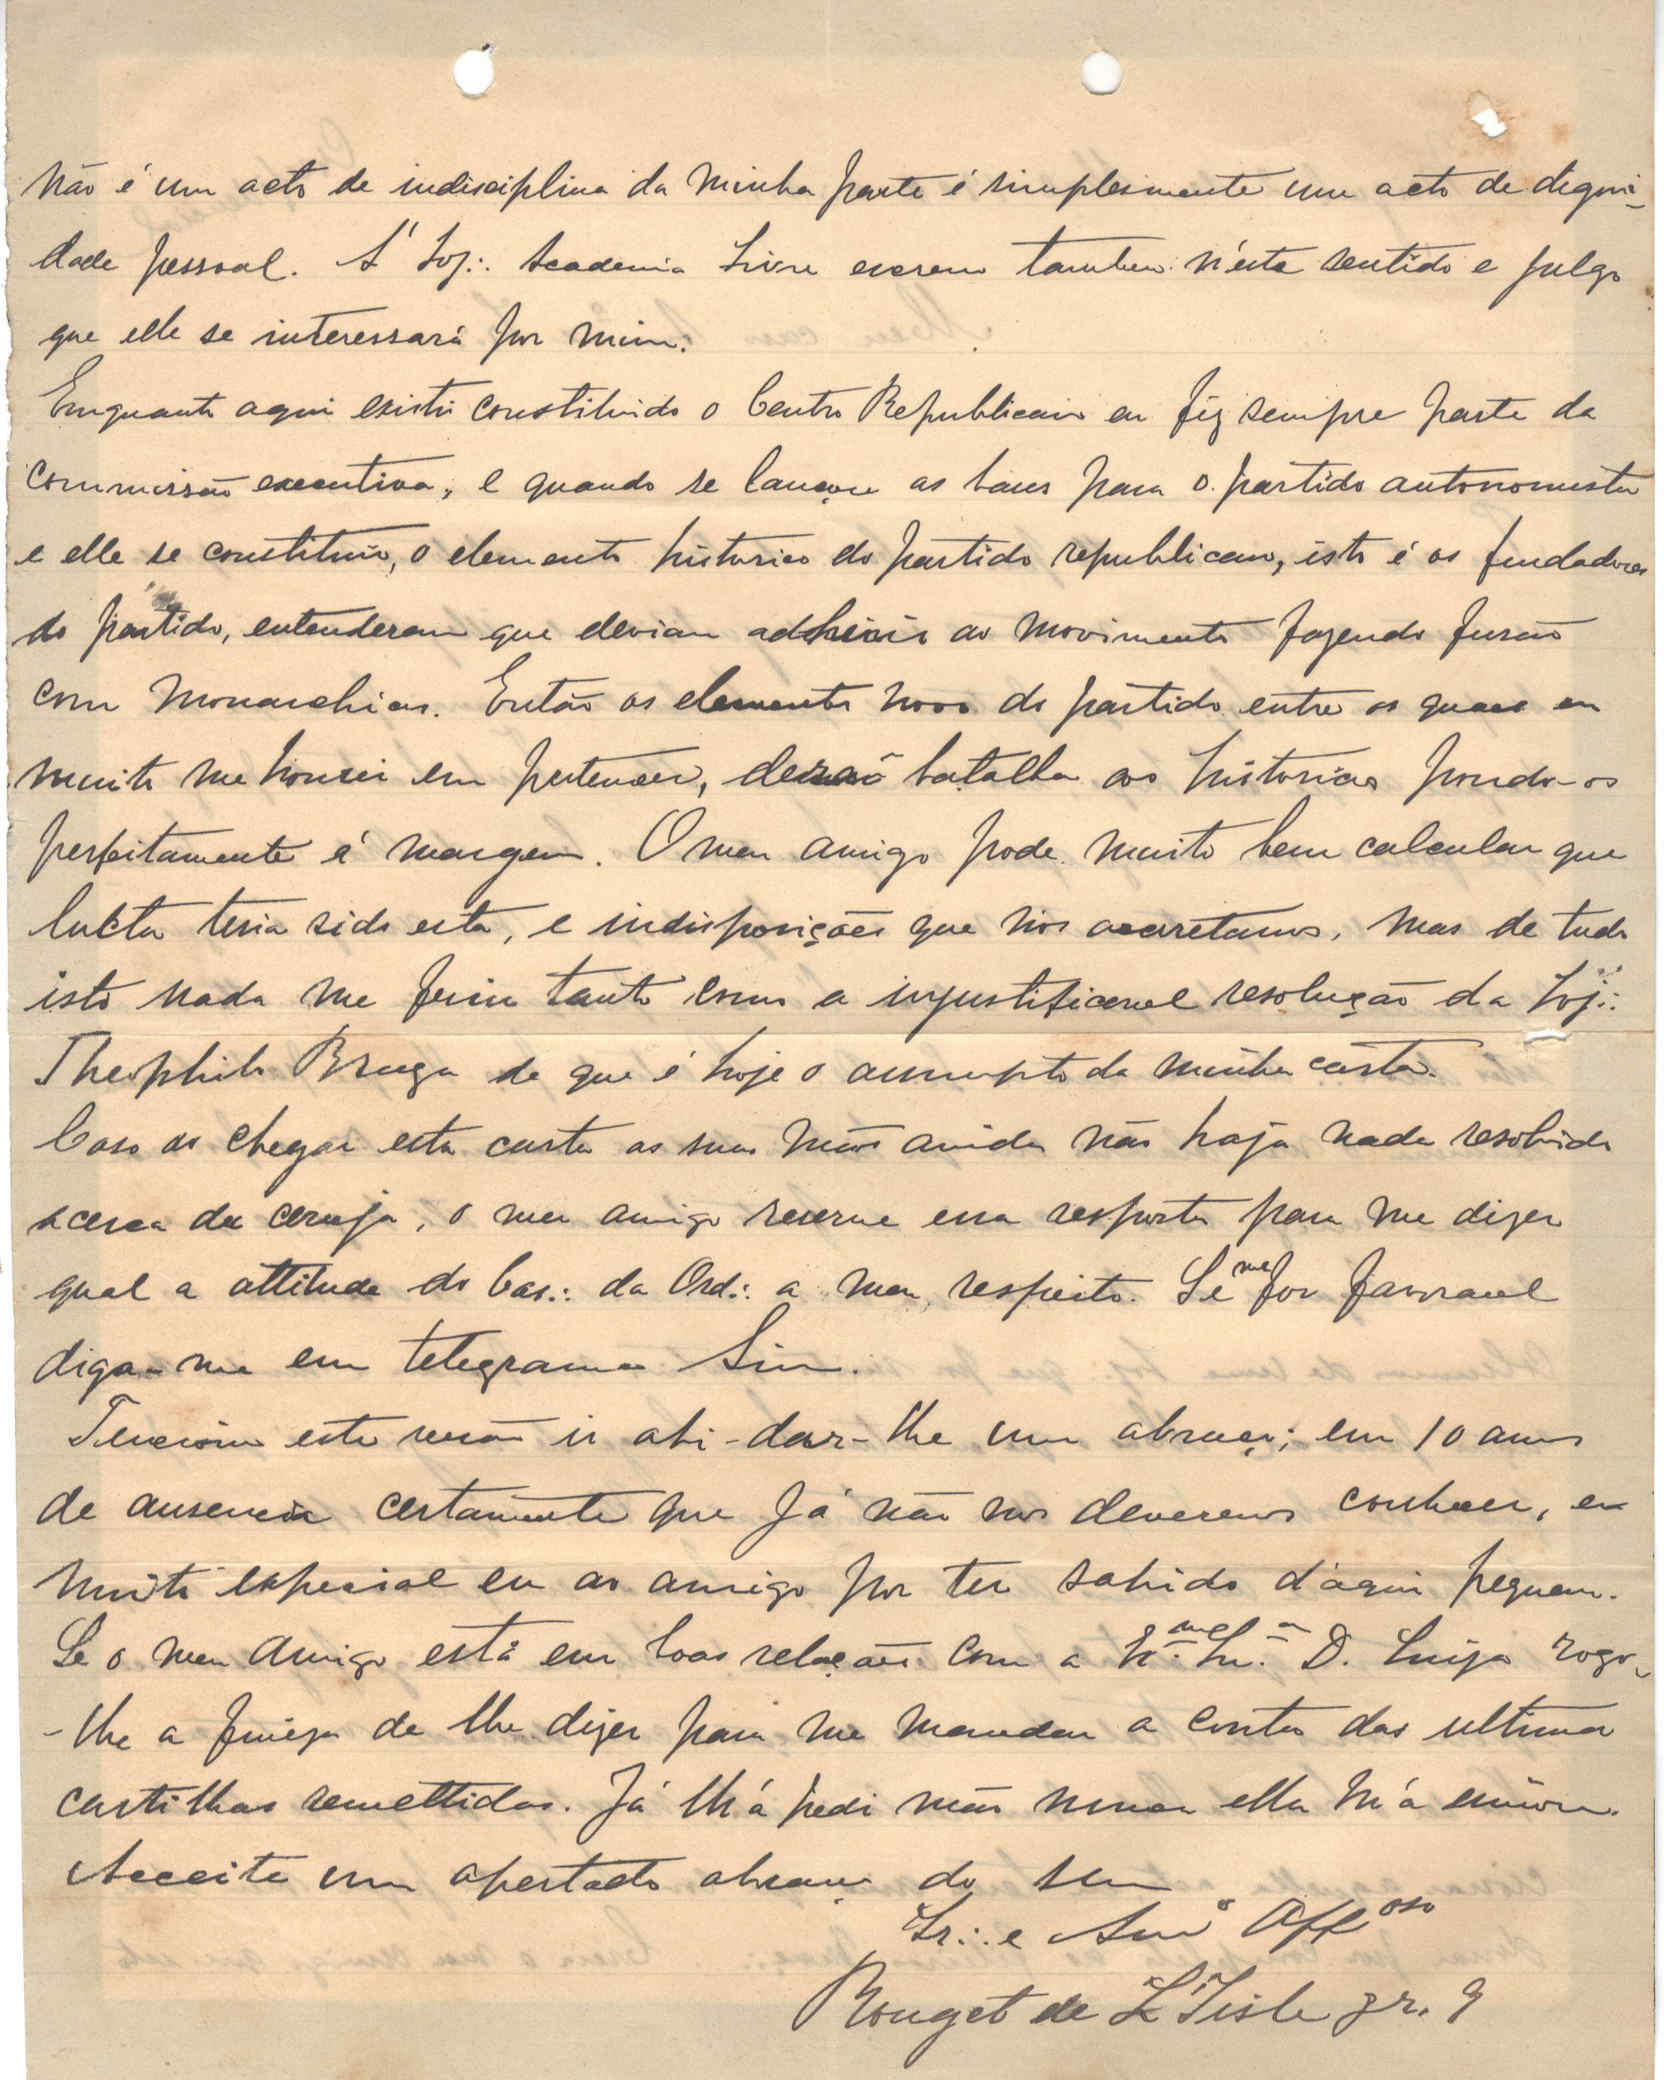 não é um acto de indisciplina da minha parte é simplesmente um acto de digni-
dade pessoal. A' Loj∴ Academia Livre escrevo tambem n'este sentido e julgo
que elle se interessará por mim.
Emquanto aqui existiu constituido o Centro Republicano eu fiz sempre parte da
commissão executiva, e quando se lançou as bases para o partido autonomista
e elle se constituiu, o elemento historico do partido republicano, isto é os fundadores
do partido, entenderam que deviam adherir ao movimento fazendo fusão
com monarchicos. Então os elementos novos do partido entre os quaes eu
muito me honrei em pertencer, derão batalha aos historicos pondo-os
perfeitamente á margem. O meu amigo pode muito bem calcular que
lucta teria sido esta, e indisposições que nos acarretamos, mas de tudo
isto nada me feriu tanto como a injustificavel resolução da Loj∴
Theophilo Braga de que é hoje o assumpto da minha carta.
Caso ao chegar esta carta as suas mãos ainda não haja nada resolvido
acerca da coruja, o meu amigo reserve essa resposta para me dizer
qual a attitude do Cons∴ da Ord∴ a meu respeito. Se me for favoravel
diga-me em telegrama Sim.
Tenciono este verão ir ahi-dar-lhe um abraço; em 10 annos
de ausencia certamente que já não nos devermos conhecer, em
muito especial eu ao amigo por ter sahido d'aqui pequeno.
Se o meu amigo está em boas relações com a D. Luiza rogo-
-lhe a fineza de lhe dizer para me mandar a conta das ultimas
cartilhas remettidas. Já lh'a pedi mas nunca ella m'a enviou.
Acceite um apertado abraço do seu
Ir∴ e Amº Aff.oso
Rouget de L'Isle gr. 9